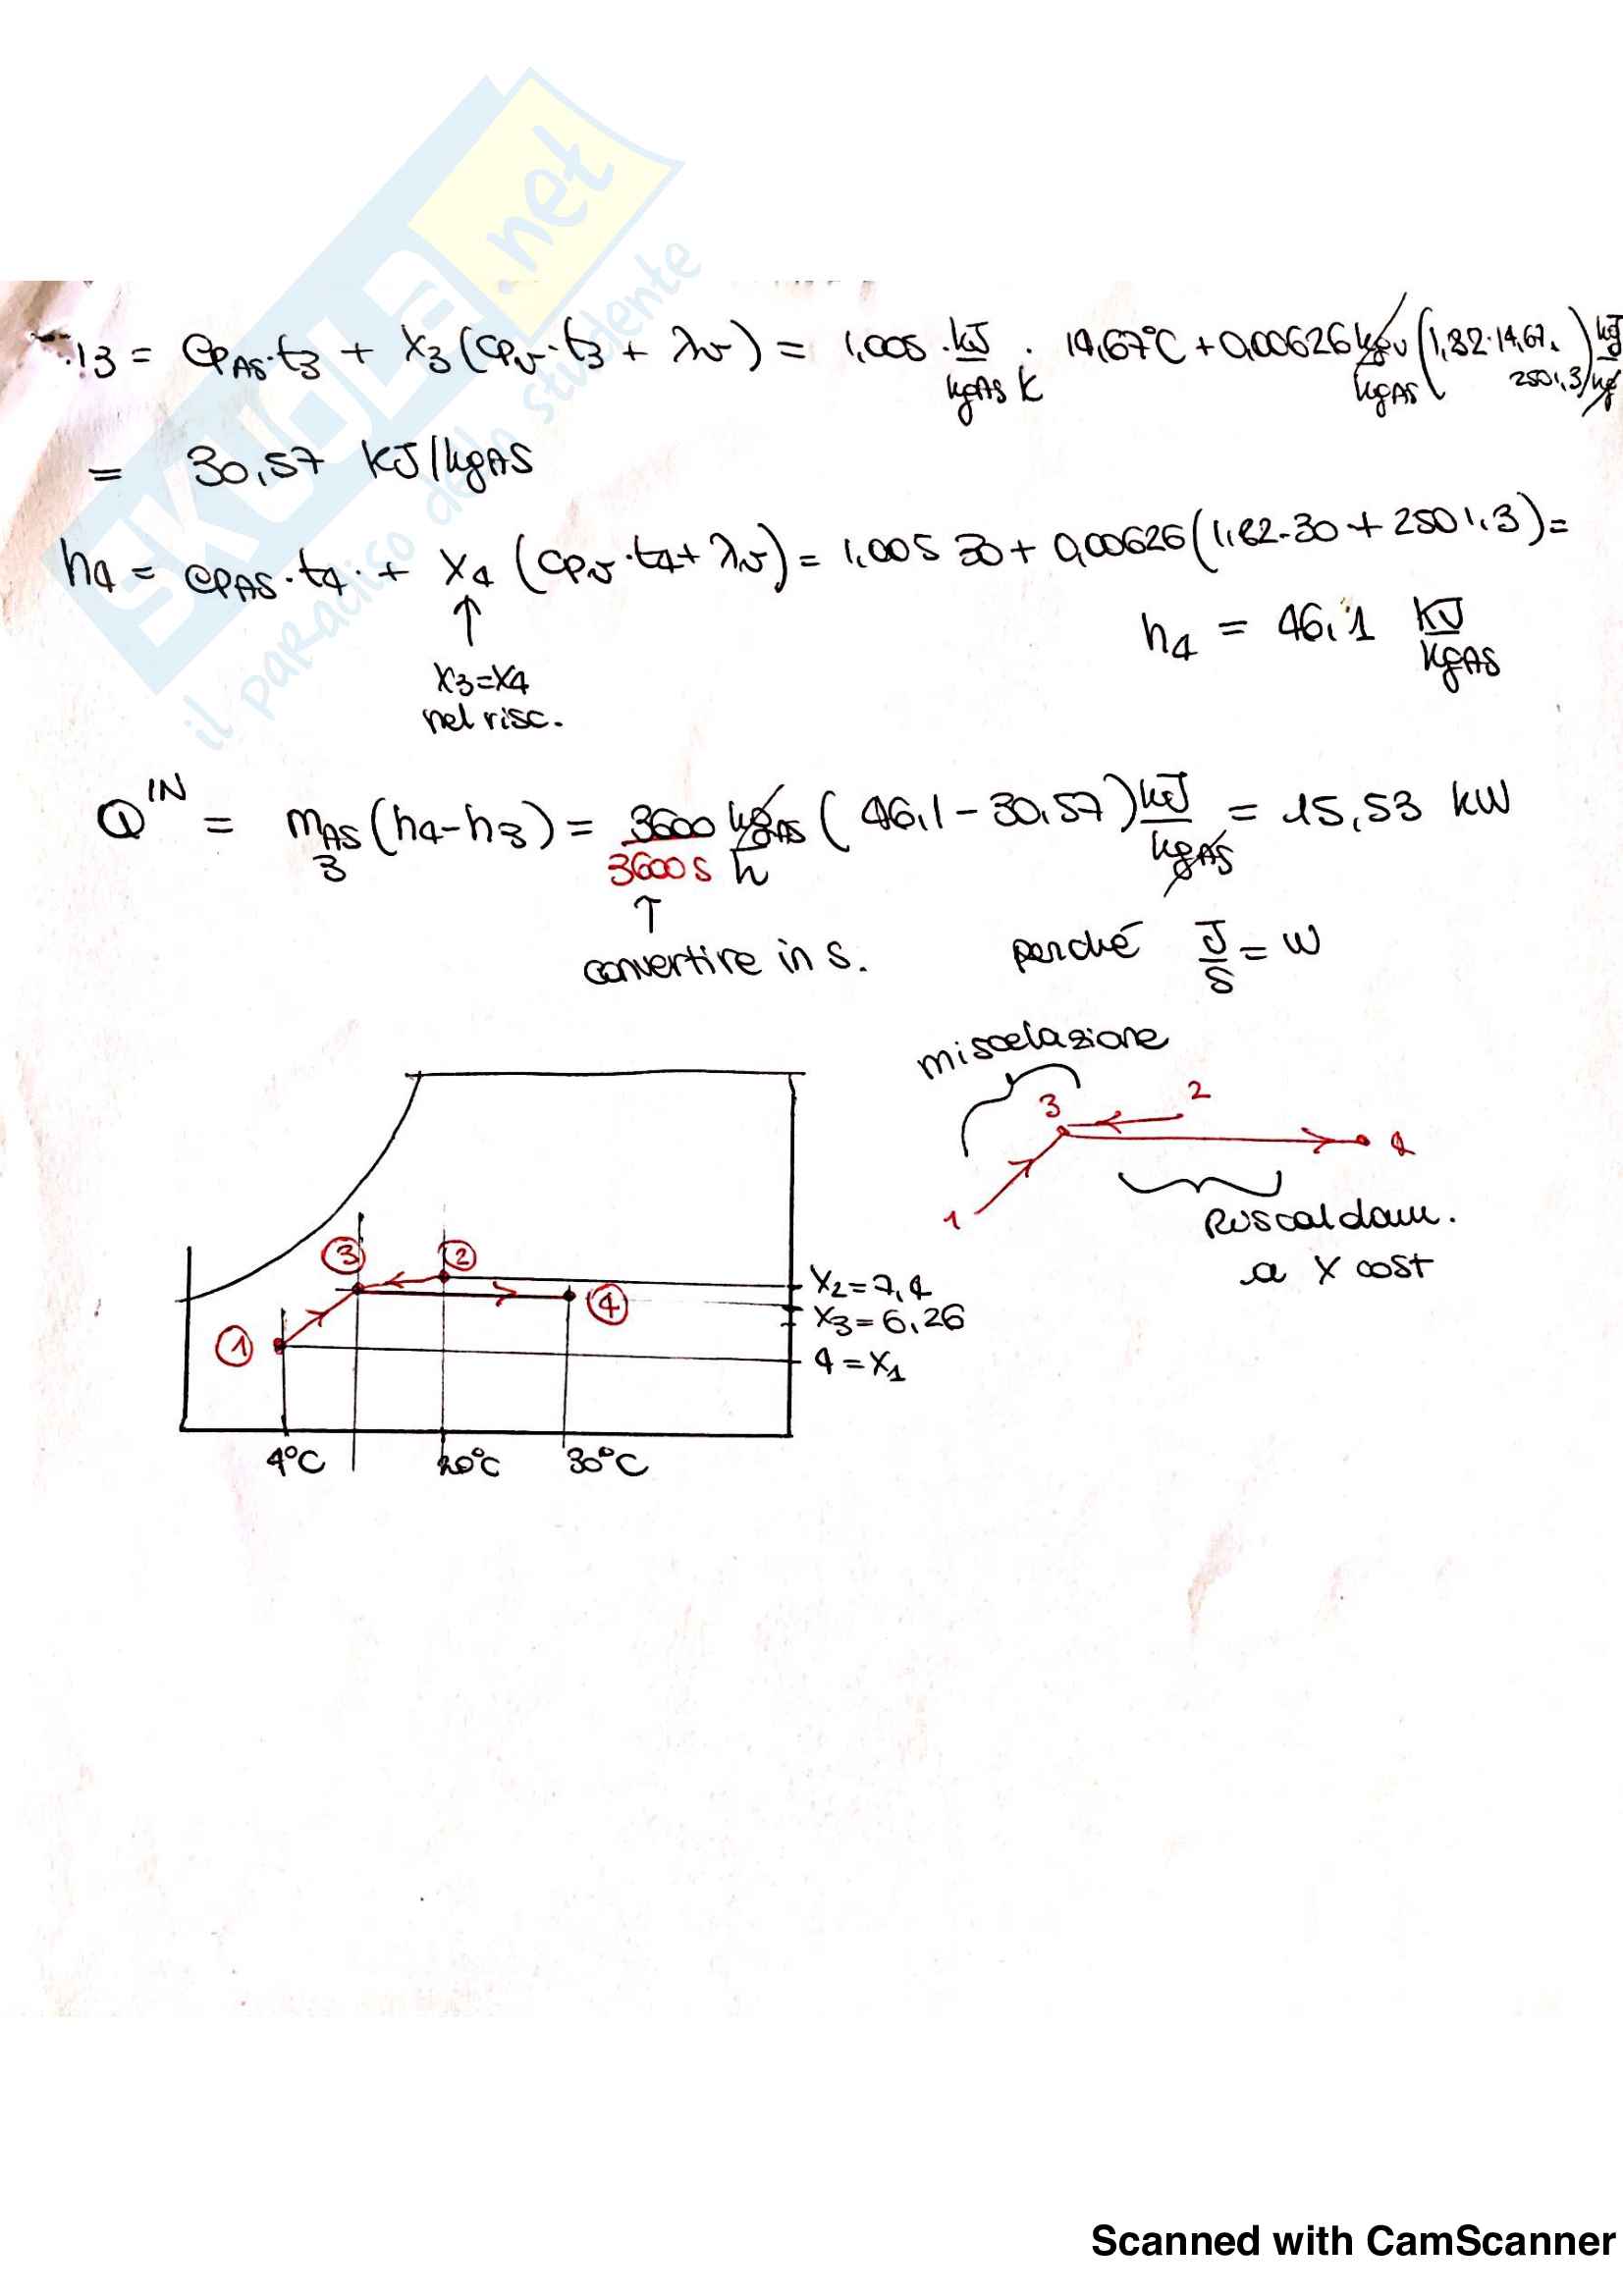 SKUOLA.net
il paradiso dello studente
h3 = CpAS·t3 + X3(Cpv·t3 + λv) = 1,005·kJ/kgAS K · 14,67°C + 0,00626 kgv/kgAS (1,82·14,67. 2501,3) kJ/kg
= 30,57 KJ/kgAS
h4 = CpAS·t4·+ X4 (Cpv·t4+λv) = 1,005 30 + 0,00626(1,82·30 + 2501,3) =
↑
h4 = 46,1 KJ/KgAS
X3=X4
nel risc.
Q^IN = mAS3 (h4-h3) = 3600/3600s kgAS/h ( 46,1 - 30,57) kJ/kgAS = 15,53 kW
↑
convertire in s. perché J/s = W
miscelazione
3 2
4
1
Riscaldam.
a X cost
3 2
4
1
X2=7,4
X3=6,26
4=X1
4°C 20°C 30°C
Scanned with CamScanner